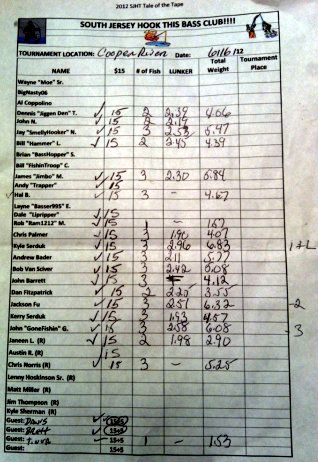 2012 SJHT Tale of the Tape
SOUTH JERSEY HOOK THIS BASS CLUB!!!!
TOURNAMENT LOCATION: Cooper River Date: 6/16/12
NAME $15 # of Fish LUNKER Total Weight Tournament Place
Wayne "Moe" Sr.
BigNasty06
Al Coppolino
Dennis "Jiggen Den" T. ✓ 15 2 2.39 4.06
John N. ✓ 15 2 2.19
Jay "SmellyHooker" N. ✓ 15 3 2.53 5.47
Bill "Hammer" L. ✓ 15 2 2.45 4.39
Brian "BassHopper" S.
Bill "FishinTroop" C.
James "Jimbo" M. ✓ 15 3 2.30 5.84
Andy "Trapper" ✓ 15
Hal B. ✓ 15 3 - 4.67
Layne "Basser995" E.
Dale "Lipripper" ✓ 15
Rob "Ram1212" M. ✓ 15 1 - 1.67
Chris Palmer ✓ 15 3 1.90 4.07
Kyle Serduk ✓ 15 3 2.96 6.83 1 + L
Andrew Bader ✓ 15 3 2.11 5.27
Bob Van Sciver ✓ 15 3 2.42 6.08
John Barrett ✓ 15 3 4.12
Dan Fitzpatrick ✓ 15 2 2.25 3.55
Jackson Fu ✓ 15 3 2.51 6.32 -2
Kerry Serduk ✓ 15 3 1.93 4.57
John "GoneFishin" G. ✓ 15 3 2.58 6.08 -3
Janeen L. (R) ✓ 15 2 1.98 2.90
Austin R. (R) 15
Chris Norris (R) ✓ 15 3 - 5.25
Lenny Hoskinson Sr. (R)
Matt Miller (R)
Jim Thompson (R)
Kyle Sherman (R)
Guest: ✓ 15+5
Guest: Brett ✓ 15+5
Guest: 15+5 1 - 1.53
Guest: 15+5